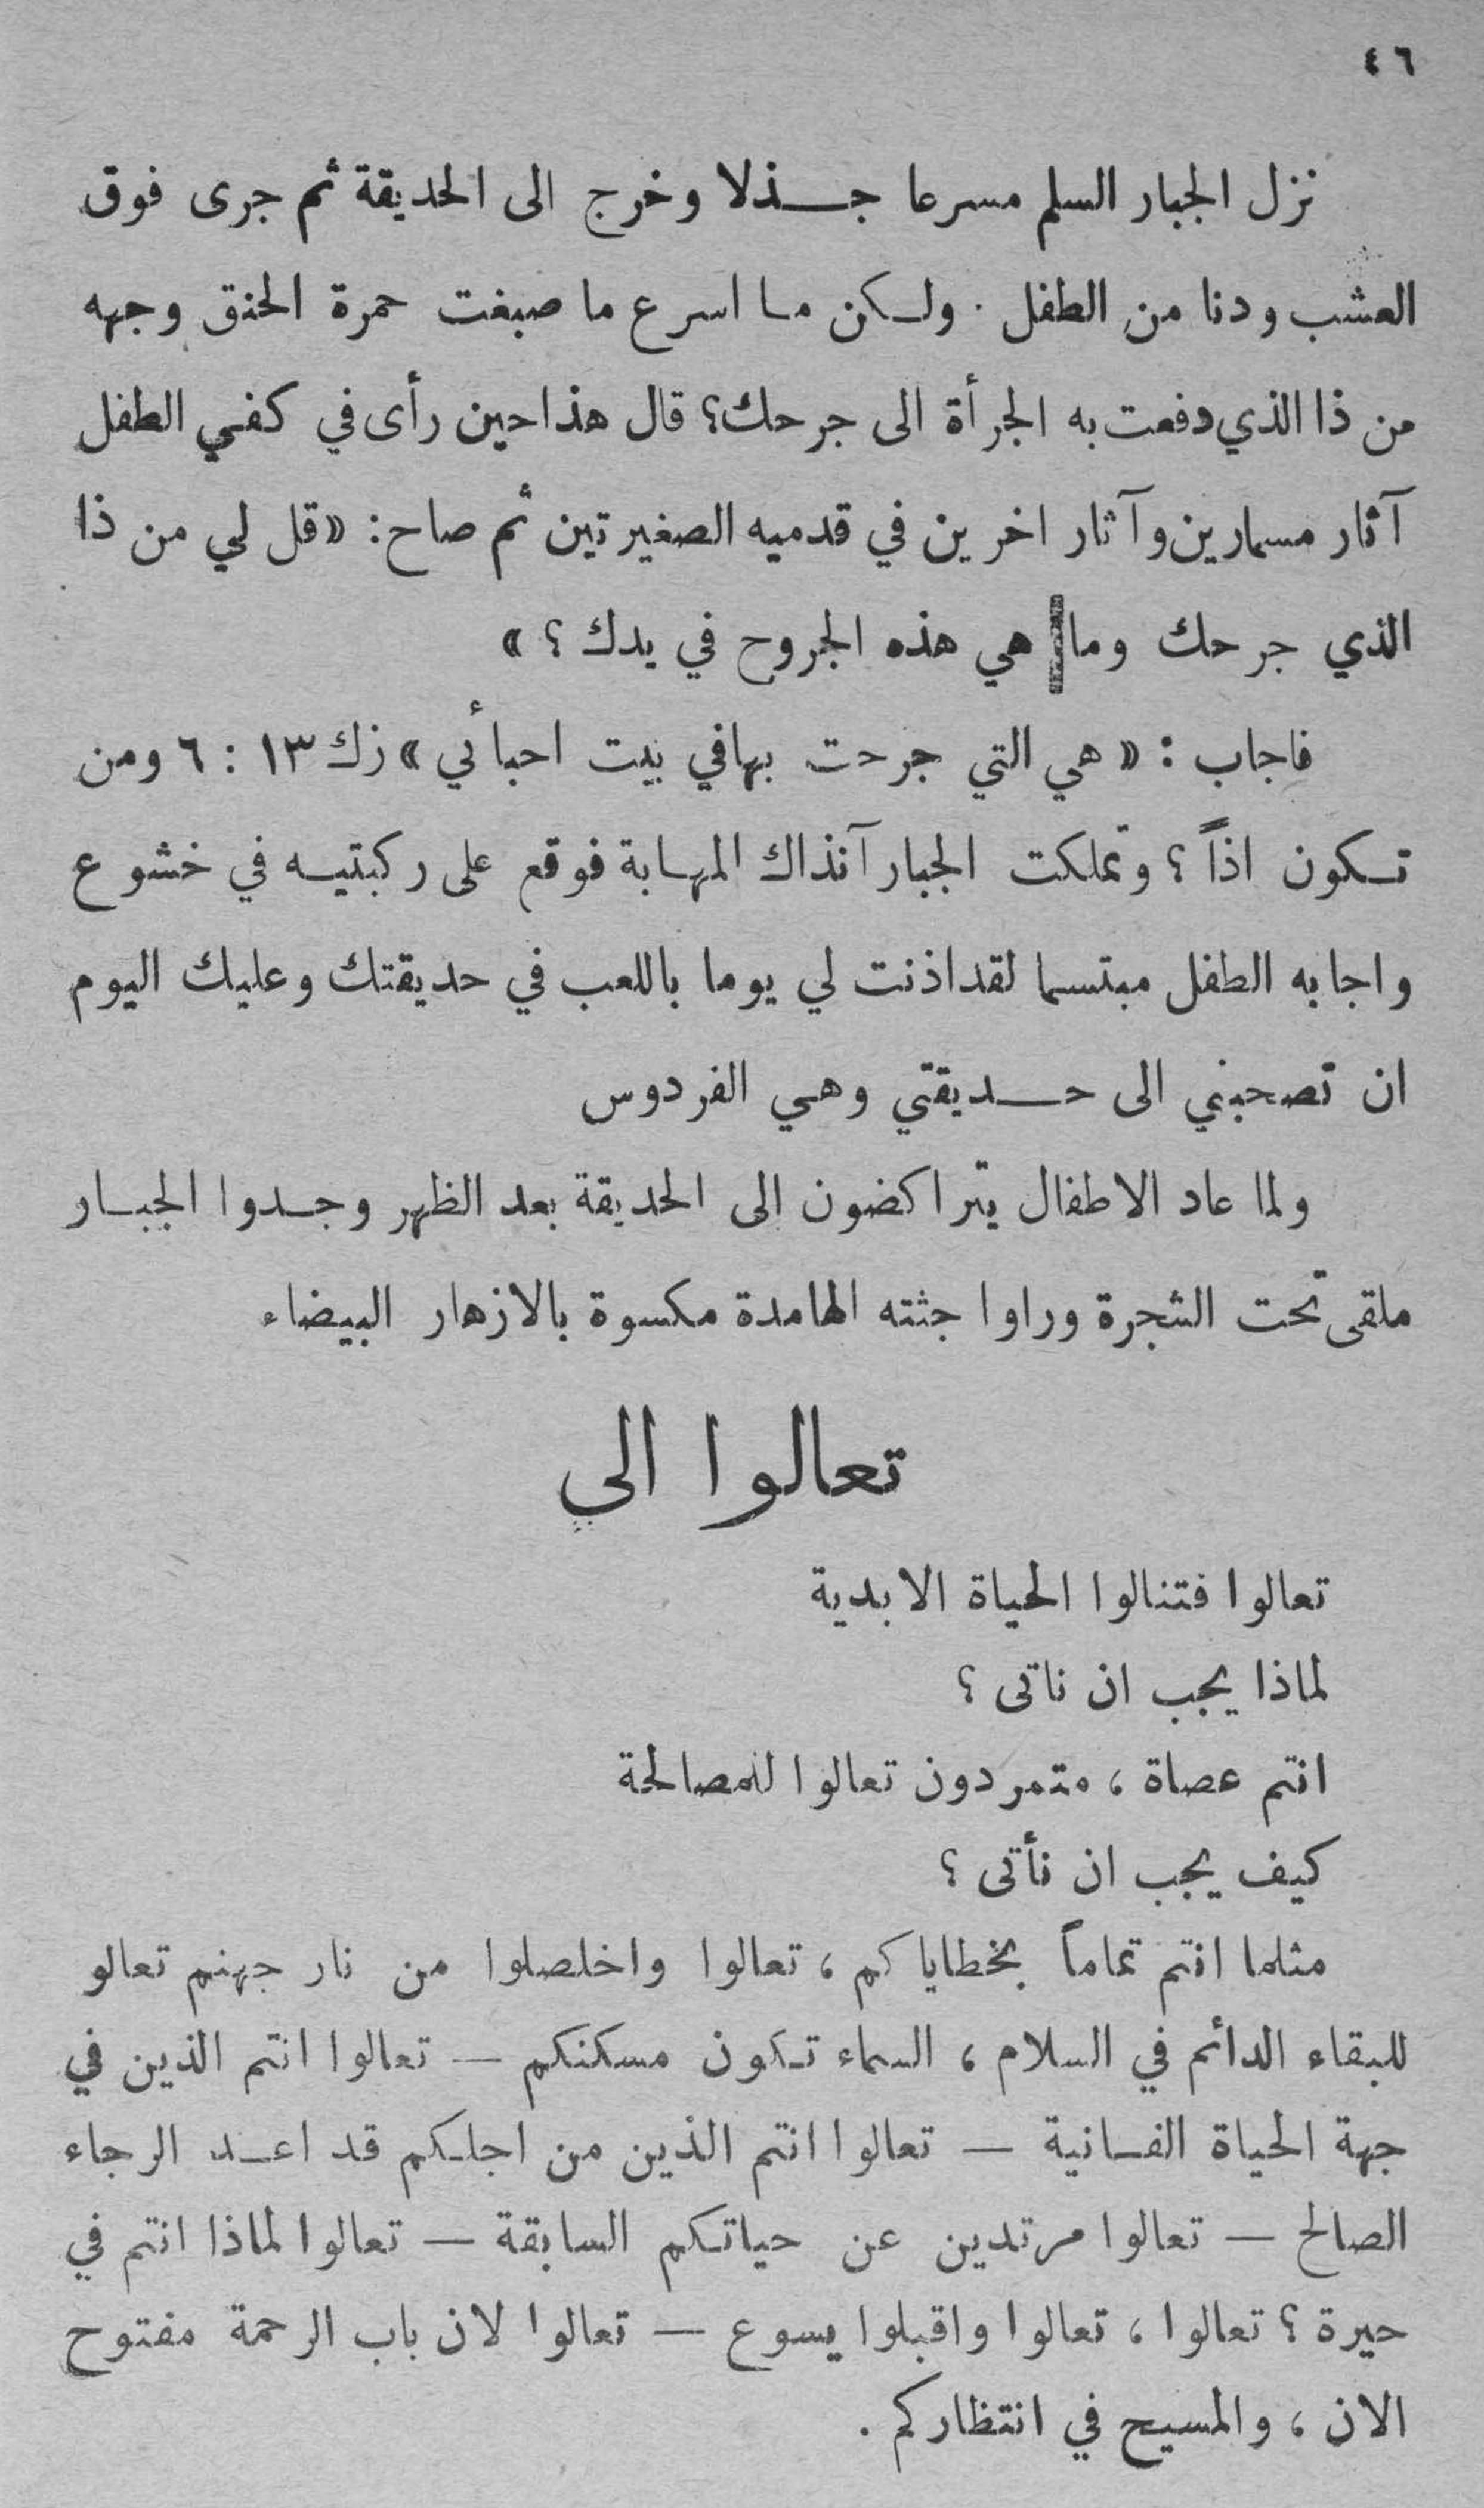 ٤٦
نزل الجبار السلم مسرعا جذلا وخرج الى الحديقة ثم جرى فوق
العشب ودنا من الطفل . ولكن ما اسرع ما صبغت حمرة الحنق وجهه
من ذا الذي دفعت به الجرأة الى جرحك؟ قال هذا حين رأى في كفي الطفل
آثار مسمارين وآثار اخرين في قدميه الصغيرتين ثم صاح: «قل لي من ذا
الذي جرحك وما هي هذه الجروح في يدك ؟ »
فاجاب : « هي التي جرحت بها في بيت احبائي » زك ١٣ : ٦ ومن
تكون اذاً ؟ وتملكت الجبار آنذاك المهابة فوقع على ركبتيه في خشوع
واجابه الطفل مبتسما لقد اذنت لي يوما باللعب في حديقتك وعليك اليوم
ان تصحبني الى حديقتي وهي الفردوس
ولما عاد الاطفال يتراكضون الى الحديقة بعد الظهر وجدوا الجبار
ملقى تحت الشجرة وراوا جثته الهامدة مكسوة بالازهار البيضاء
تعالوا الي
تعالوا فتنالوا الحياة الابدية
لماذا يجب ان ناتى ؟
انتم عصاة ، متمردون تعالوا للمصالحة
كيف يجب ان نأتى ؟
مثلما انتم تماماً بخطاياكم ، تعالوا واخلصلوا من نار جهنم تعالو
للبقاء الدائم في السلام ، السماء تكون مسكنكم — تعالوا انتم الذين في
جهة الحياة الفانية — تعالوا انتم الذين من اجلكم قد اعد الرجاء
الصالح — تعالوا مرتدين عن حياتكم السابقة — تعالوا لماذا انتم في
حيرة ؟ تعالوا ، تعالوا واقبلوا يسوع — تعالوا لان باب الرحمة مفتوح
الان ، والمسيح في انتظاركم .